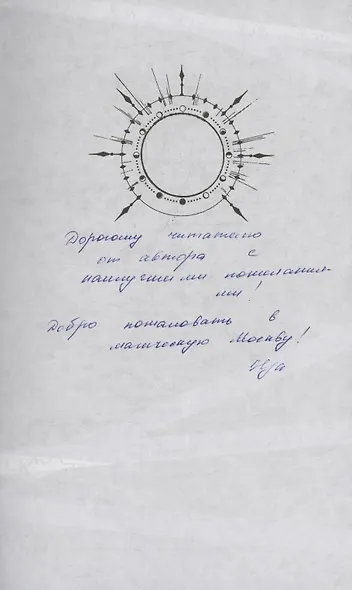 Дорогому читателю
от автора с
наилучшими пожелания-
ми!
Добро пожаловать в
магическую Москву!